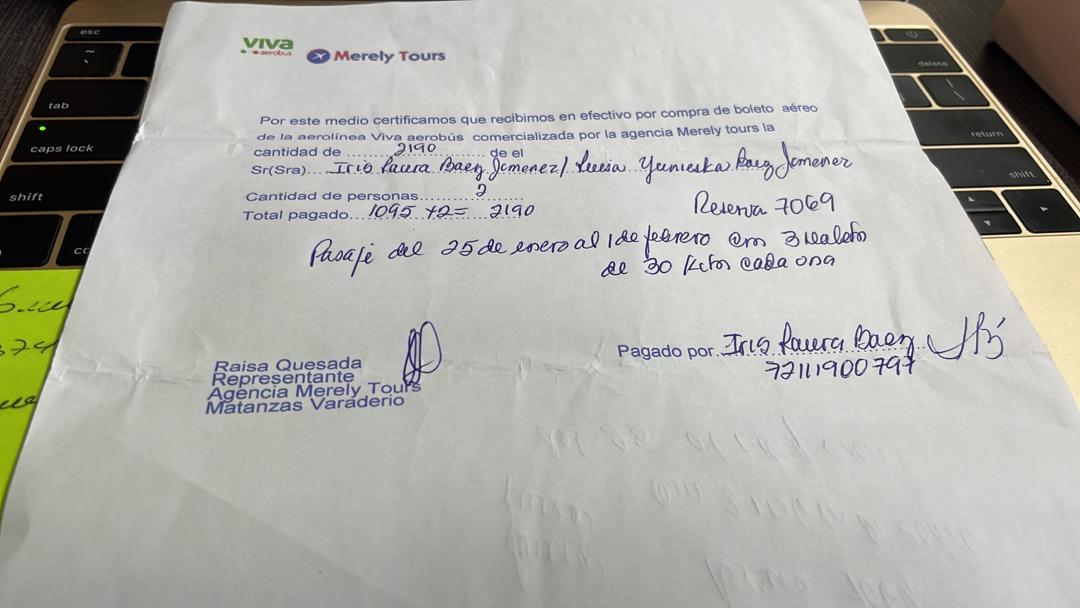 viva
aerobus
Merely Tours
Por este medio certificamos que recibimos en efectivo por compra de boleto aéreo
de la aerolínea Viva aerobús comercializada por la agencia Merely tours la
cantidad de ......2190............. de el
Sr(Sra).... Iris Laura Baez Jimenez / Yunieska Baez Jimenez
Cantidad de personas......2.............
Total pagado...1095 x2= 2190
Reserva 7069
Pasaje del 25 de enero al 1 de febrero con 3 maletas
de 30 kilos cada una
Raisa Quesada
Representante
Agencia Merely Tours
Matanzas Varaderio
Pagado por Iris Laura Baez
72111900797
esc
~
tab
caps lock
shift
delete
return
shift
374